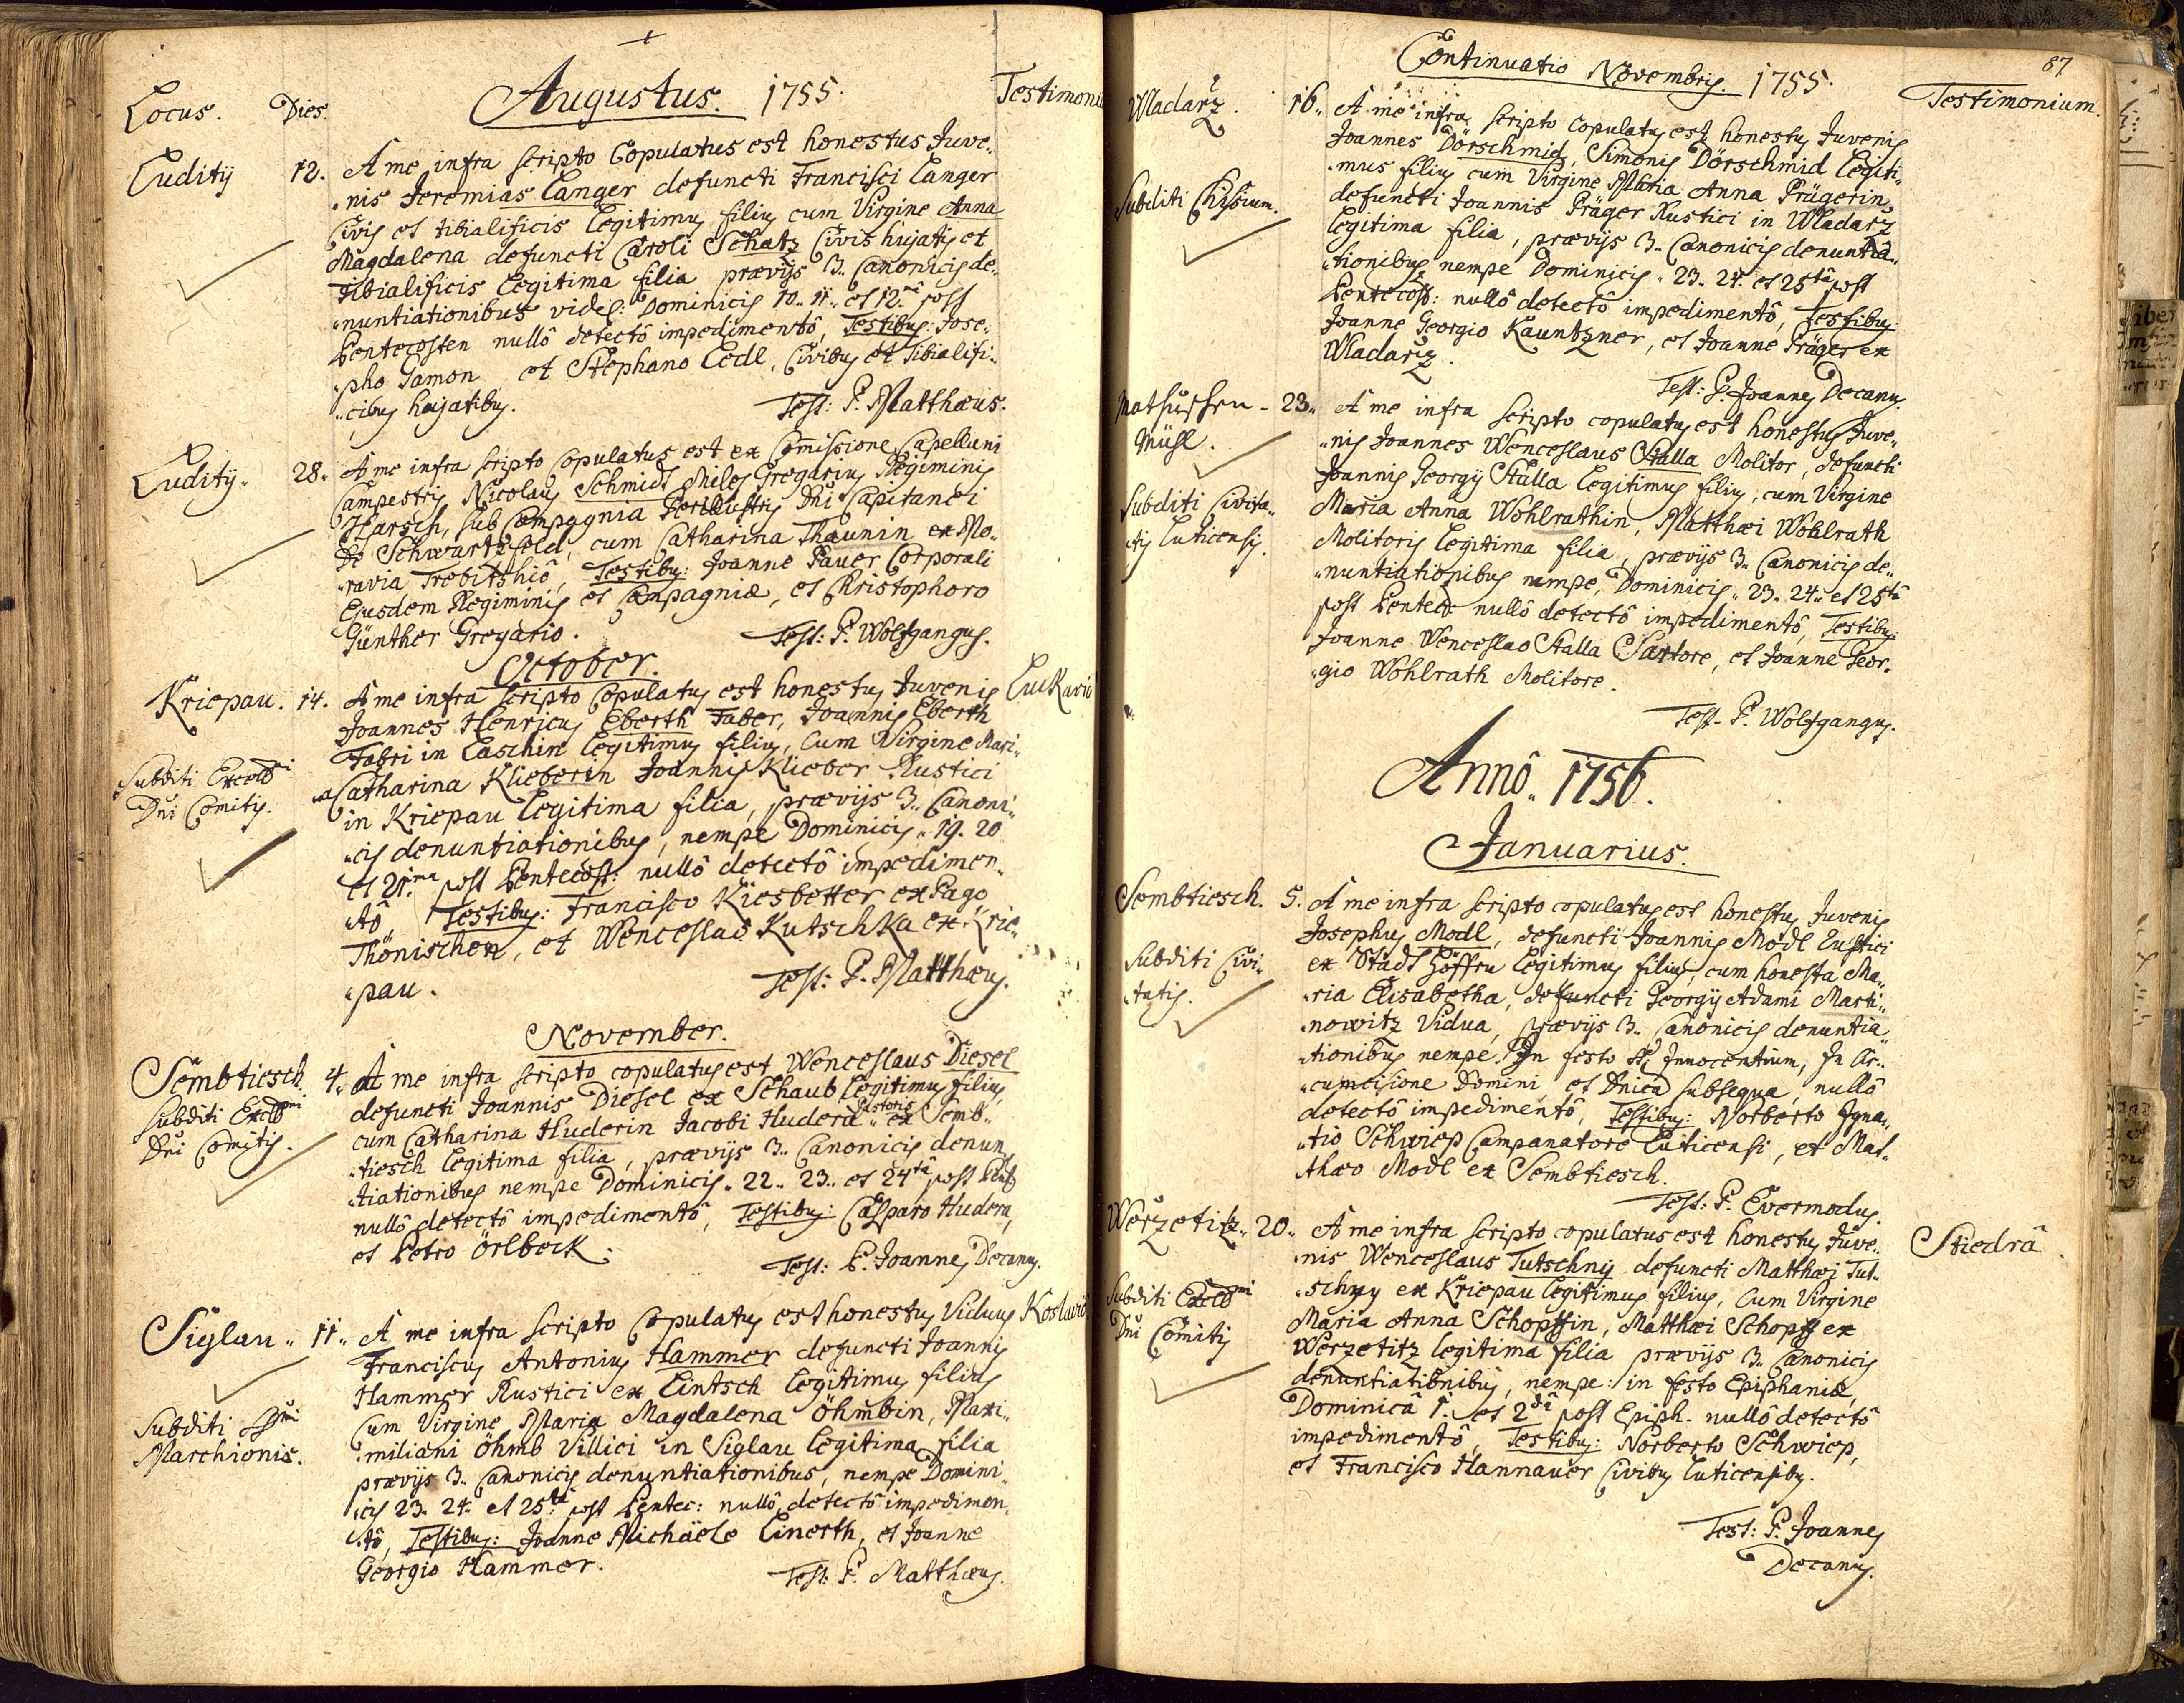 Augustus. 1755.
Locus. Dies. Testimoniu
Luditÿ 12. A me infra scripto Copulatus est honestus Juve„
„nis Jeremias Langer defuncti Francisci Langer
Civis et tibialificis Legitimus filius cum Virgine Anna
Magdalena defuncti Caroli Schatz Civis hujatis et
Tibialificis Legitima filia prævijs 3. Canonicis de„
„nuntiationibus videl: Dominicis 10. 11. et 12.â post
Pentecosten nullô detectô impedimentô, Testibus: Jose„
„pho Gamon et Stephano Ledl, Civibus et Tibialifi„
„cibus hujatibus.
Test: P. Matthæus.
Luditÿ. 28. A me infra scripto Copulatus est ex Com̄issione Capellani
Campestris Nicolaus Schmidt Miles Gregarius Regiminis
Harsch, sub Compagnia Perillustris Dn̄i Capitanei
De Schwartzfeld, cum Catharina Thaunin ex Mo„
„ravia Trebitshiô, Testibus: Joanne Pauer Corporali
Ejusdem Regiminis et Compagniæ, et Christophoro
Günther Gregario.
Test: P. Wolfgangus.
October.
Kriepau. 14. A me infra scripto Copulatus est honestus Juvenis Luckavic
Joannes Henricus Eberth Faber, Joannis Eberth
Fabri in Laschin Legitimus filius, Cum Virgine Mari„
Subditi Excell̄mi
Dn̄i Comitis.
„a Catharina Klieberin Joannis Klieber Rustici
in Kriepau Legitima filia, prævijs 3. Canoni„
„cis denuntiationibus, nempe Dominicis. 19. 20
et 21.ma post Pentecost: nullô detectô impedimen„
„tô Testibus: Francisco Kiesbetter ex Pago
Thönischen, et Wenceslao Kutschka ex Krie„
„pau.
Test: P. Matthæus.
November.
Sembtiesch. 4. A me infra scripto copulatus est Wenceslaus Diesel
Subditi Excell̄mi
Dn̄i Comitis.
defuncti Joannis Diesel ex Schaub Legitimus filius,
cum Catharina Huderin Jacobi Hudera Pastoris ex Semb„
„tiesch Legitima filia, prævijs 3. Canonicis denun„
„tiationibus nempe Dominicis. 22. 23. et 24tâ post Pent:
nullô detectô impedimentô, Testibus: Casparo Hudera,
et Petro Örlbeck.
Test: P. Joannes Decanus.
Siglau. 11. A me infra scripto Copulatus est honestus Viduus Koslavic
Franciscus Antonius Hammer defuncti Joannis
Hammer Rustici ex Lintsch Legitimus filius
Cum Virgine Maria Magdalena Öhmbin, Maxi„
Subditi
Marchionis.
„miliani Öhmb Villici in Siglau Legitima filia
prævijs 3. Canonicis denuntiationibus, nempe Domini„
„cis 23. 24. et 25.tâ post Pentec: nullô detectô impedimen„
„tô, Testibus: Joanne Michäele Linerth, et Joanne
Georgio Hammer.
Test: P. Matthæus.
87
Continuatio Novembris. 1755.
Testimonium.
Wladarz. 16. A me infra scripto Copulatus est honestus Juvenis
Joannes Dörschmid, Simonis Dörschmid Legiti„
„mus filius cum Virgine Maria Anna Prägerin,
Subditi Chysium.
defuncti Joannis Präger Rustici in Wladarz
Legitima filia, prævijs 3. Canonicis denuntia„
„tionibus nempe Dominicis. 23. 24. et 25tâ post
Pentecost: nullô detectô impedimentô, Testibus:
Joanne Georgio Kauntzner, et Joanne Präger ex
Wladarz.
Test: P. Joannes Decanus.
Mathuschen„
Mühl.
23. A me infra scripto copulatus est honestus Juve„
„nis Joannes Wenceslaus Stalla Molitor, defuncti
Joannis Georgÿ Stalla Legitimus filius, cum Virgine
Subditi Civita„
„tis Luticensis.
Maria Anna Wohlrathin, Matthæi Wohlrath
Molitoris Legitima filia, prævijs 3. Canonicis de„
„nuntiationibus nempe, Dominicis. 23. 24. et 25tâ
post Pentec: nullô detectô impedimentô, Testibus:
Joanne Wenceslao Stalla Sartore, et Joanne Geor„
„gio Wohlrath Molitore.
Test. P. Wolfgangus.
Annô. 1756.
Januarius.
Sembtiesch. 5. A me infra scripto copulatus est honestus Juvenis
Josephus Modl, defuncti Joannis Modl Rustici
Subditi Civi„
„tatis.
ex Stadt Höffen Legitimus filius, cum honesta Ma„
„ria Elisabetha, defuncti Georgÿ Adami Marti„
„nowitz Vidua, prævijs 3. Canonicis denuntia„
„tionibus nempe. In festo SS. Innocentium, In Cir„
„cumcisione Domini et Dn̄ica subsequa, nullô
detectô impedimentô, Testibus: Norberto Igna„
„tio Schwiep Campanatore Luticensi, et Mat„
thæo Modl ex Sembtiesch.
Test: P. Evermodus.
Werzetitz. 20. A me infra scripto copulatus est honestus Juve„ Stiedrâ.
„nis Wenceslaus Tutschny defuncti Matthæi Tut„
Subditi Excell̄mi
Dn̄i Comitis
„schny ex Kriepau Legitimus filius, Cum Virgine
Maria Anna Schopffin, Matthæi Schopff ex
Werzetitz Legitima filia prævijs 3. Canonicis
denuntiationibus, nempe: in festo Epiphaniæ,
Dominicâ 1. et 2dâ post Epiph. nullô detectô
impedimentô, Testibus: Norberto Schwiep,
et Francisco Hannauer Civibus Luticensibus.
Test: P. Joannes
Decanus.